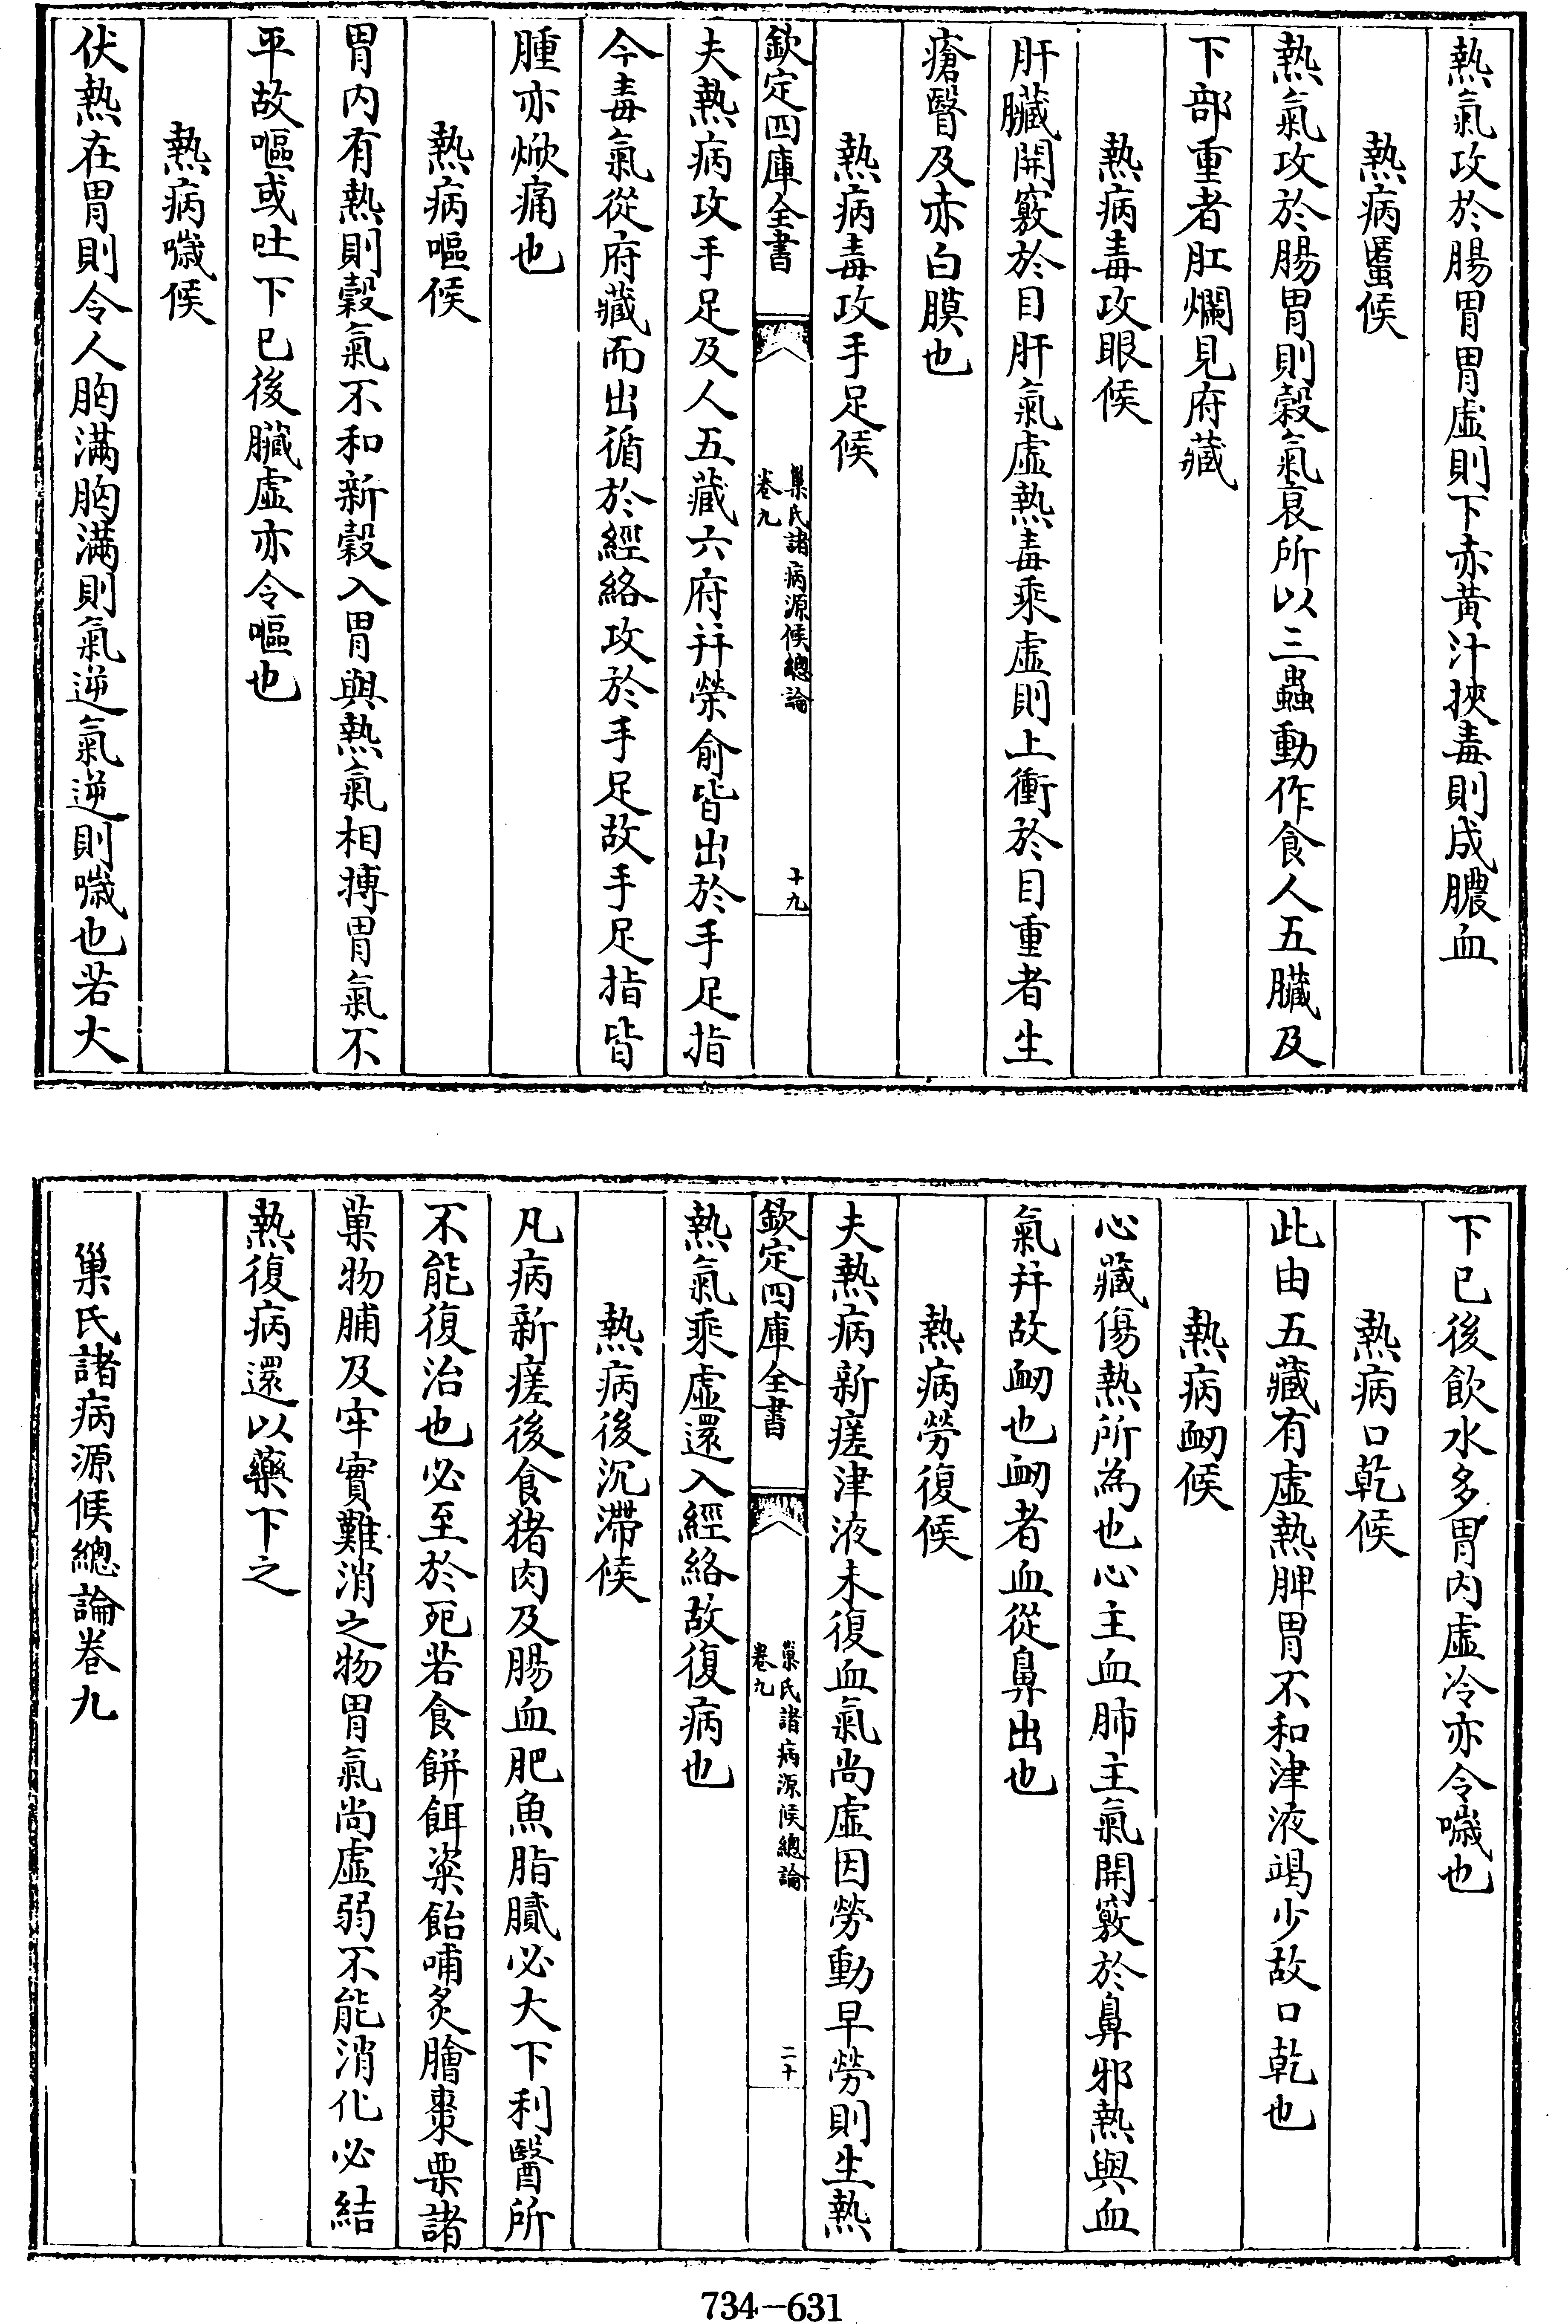 熱氣攻於腸胃胃虛則下赤黃汁挾毒則成膿血
熱病䘌候
熱氣攻於腸胃則穀氣衰所以三蟲動作食人五臟及
下部重者肛爛見府藏
熱病毒攻眼候
肝臟開竅於目肝氣虛熱毒乘虛則上衝於目重者生
瘡翳及赤白膜也
熱病毒攻手足候
欽定四庫全書
巢氏諸病源候總論
卷九
十九
夫熱病攻手足及人五藏六府井榮俞皆出於手足指
今毒氣從府藏而出循於經絡攻於手足故手足指皆
腫亦焮痛也
熱病嘔候
胃內有熱則穀氣不和新穀入胃與熱氣相搏胃氣不
平故嘔或吐下已後臟虛亦令嘔也
熱病噦候
伏熱在胃則令人胸滿胸滿則氣逆氣逆則噦也若大
下已後飲水多胃內虛冷亦令噦也
熱病口乾候
此由五藏有虛熱脾胃不和津液竭少故口乾也
熱病衂候
心藏傷熱所為也心主血肺主氣開竅於鼻邪熱與血
氣并故衂也衂者血從鼻出也
熱病勞復候
夫熱病新瘥津液未復血氣尚虛因勞動早勞則生熱
欽定四庫全書
巢氏諸病源候總論
卷九
二十
熱氣乘虛還入經絡故復病也
熱病後沉滯候
凡病新瘥後食猪肉及腸血肥魚脂膩必大下利醫所
不能復治也必至於死若食餅餌粢飴哺炙膾棗栗諸
菓物脯及牢實難消之物胃氣尚虛弱不能消化必結
熱復病還以藥下之
巢氏諸病源候總論卷九
734-631